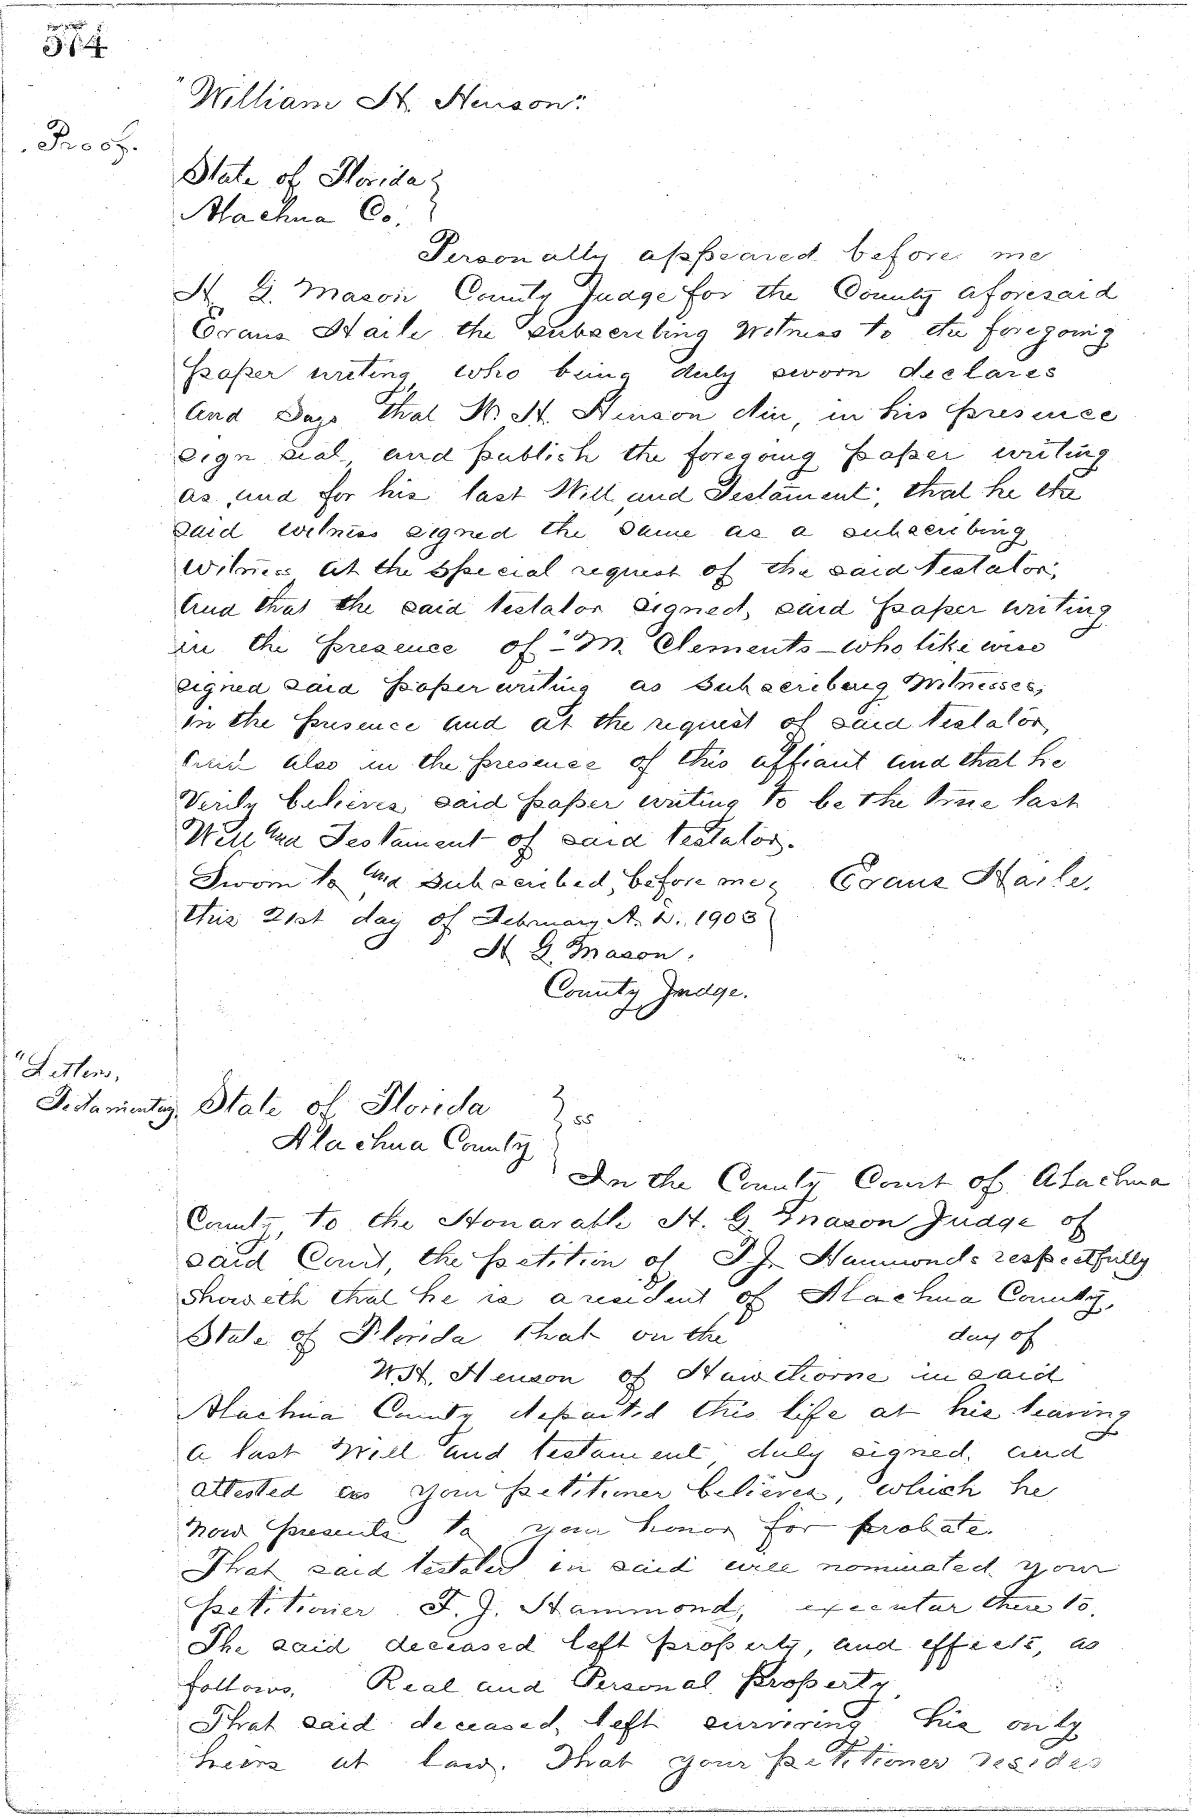 574
"William H. Henson".
Proof.
State of Florida }
Alachua Co. }
Personally appeared before me
H. G. Mason County Judge for the County aforesaid
Evans Haile the subscribing Witness to the foregoing
paper writing, who being duly sworn declares
and Says that W. H. Henson did, in his presence
sign seal, and publish the foregoing paper writing
as, and for his last Will, and Testament; that he the
said witness signed the same as a subscribing
witness at the special request of the said testator;
And that the said testator signed, said paper writing
in the presence of "M. Clements - who likewise
signed said paper writing as Subscribeing Witnesses,
in the presence and at the request of said testator,
and also in the presence of this affiant and that he
Verily believes said paper writing to be the true last
Will and Testament of said testator.
Sworn to and subscribed, before me } Evans Haile.
this 21st day of February A. D. 1903 }
H G. Mason.
County Judge.
"Letters,
Testamentary. State of Florida } ss
Alachua County }
In the County Court of Alachua
County, to the Honarable H. G. Mason Judge of
said Court, the petition of T. J. Hammonds respectfully
Showeth that he is a resident of Alachua County,
State of Florida that on the day of
W. H. Henson of Hawthorne in said
Alachua County departed this life at his leaving
a last Will and testament, duly signed, and
attested as your petitioner believes, which he
now presents to your honor for probate.
That said testator in said will nominated your
petitioner T. J. Hammond, executar there to.
The said deceased left property, and effects, as
follows. Real and Personal Property,
That said deceased, left surviving his only
heirs at law. That your petitioner resides